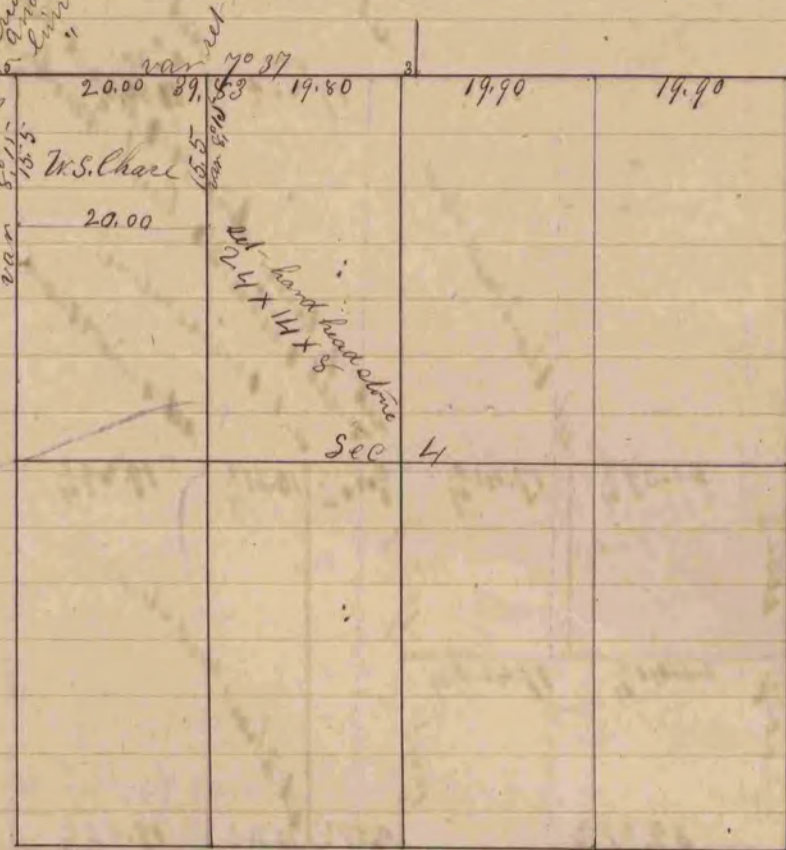 and
van set 7° 37
5 3
20.00 39.53 19.80 19.90 19.90
van 5° 15
15.5
W.S. Chase
15.5
20.00
set hard head stone
24 X 14 X 8
Sec 4